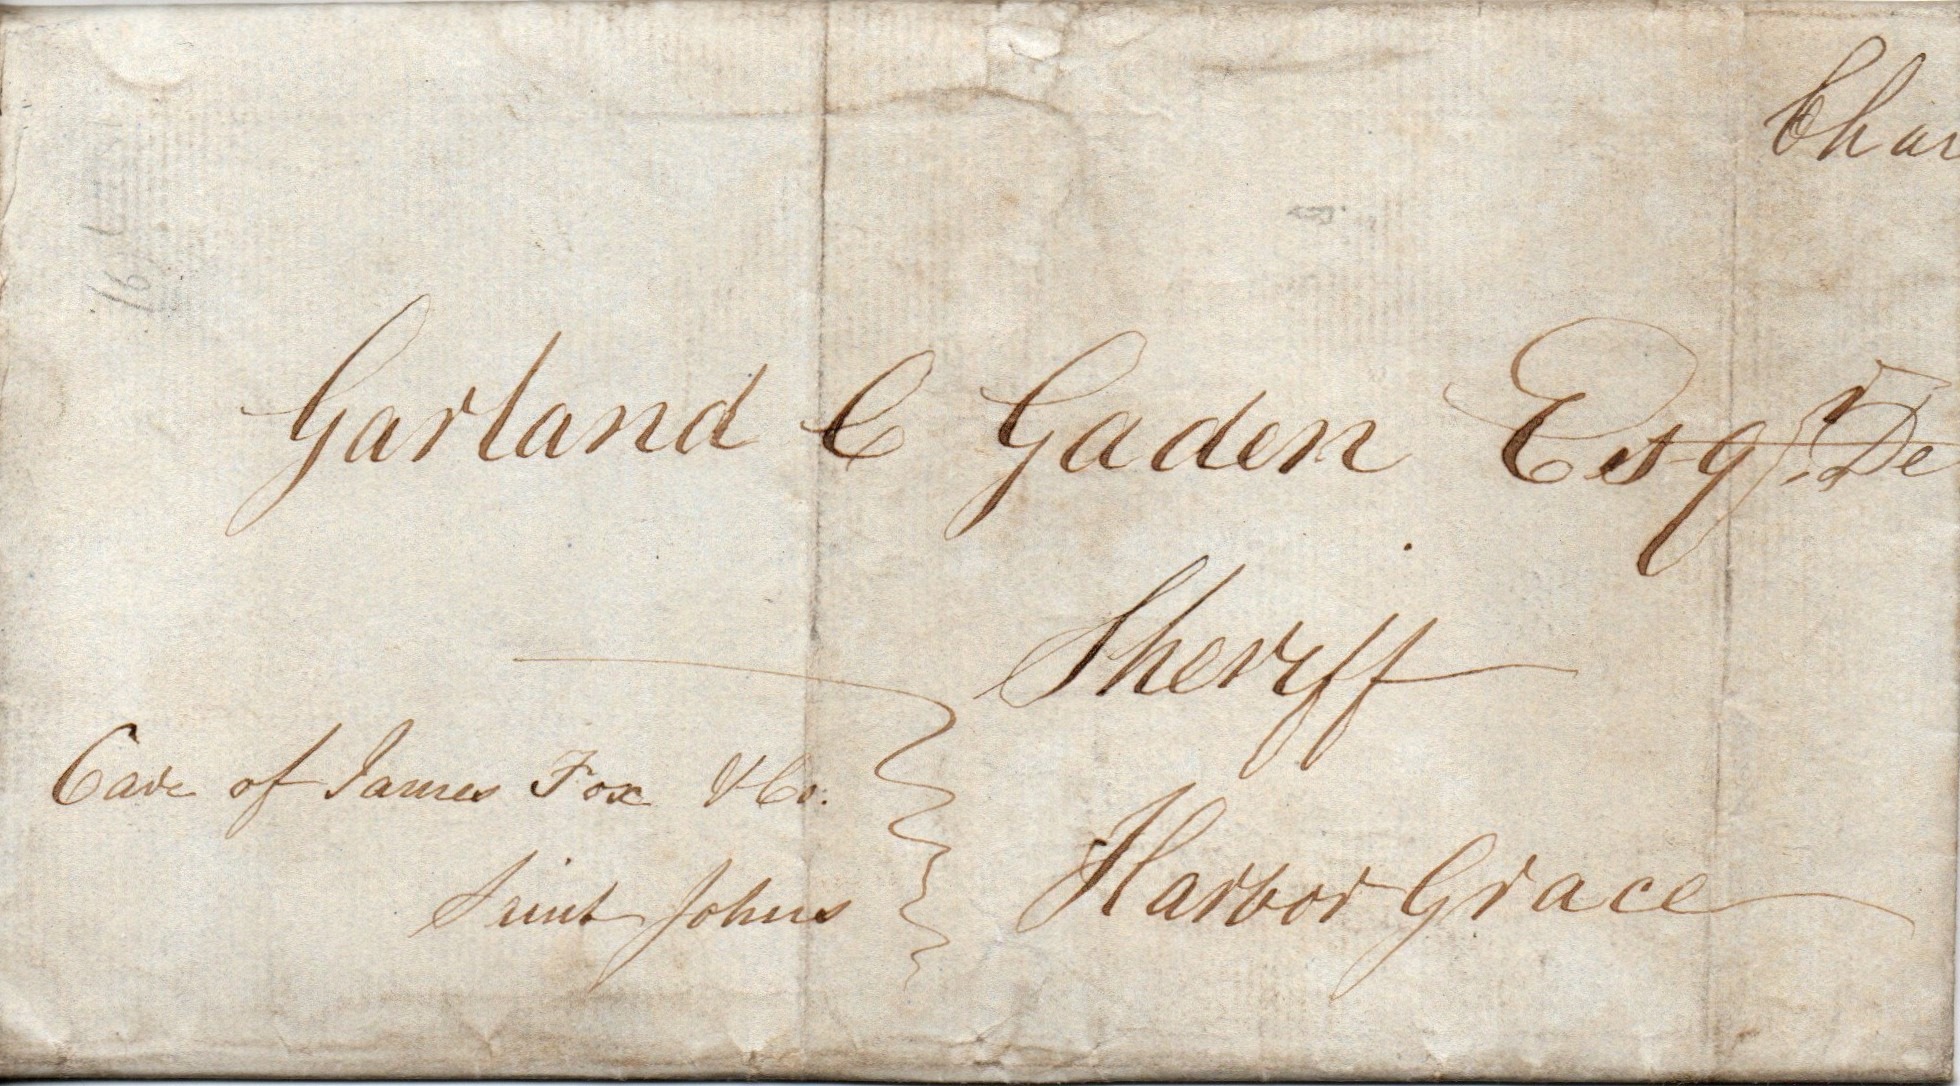 Char
Garland C Gaden Esqr. De
Sheriff
Care of James Fox & Co.
Saint Johns
Harbor Grace